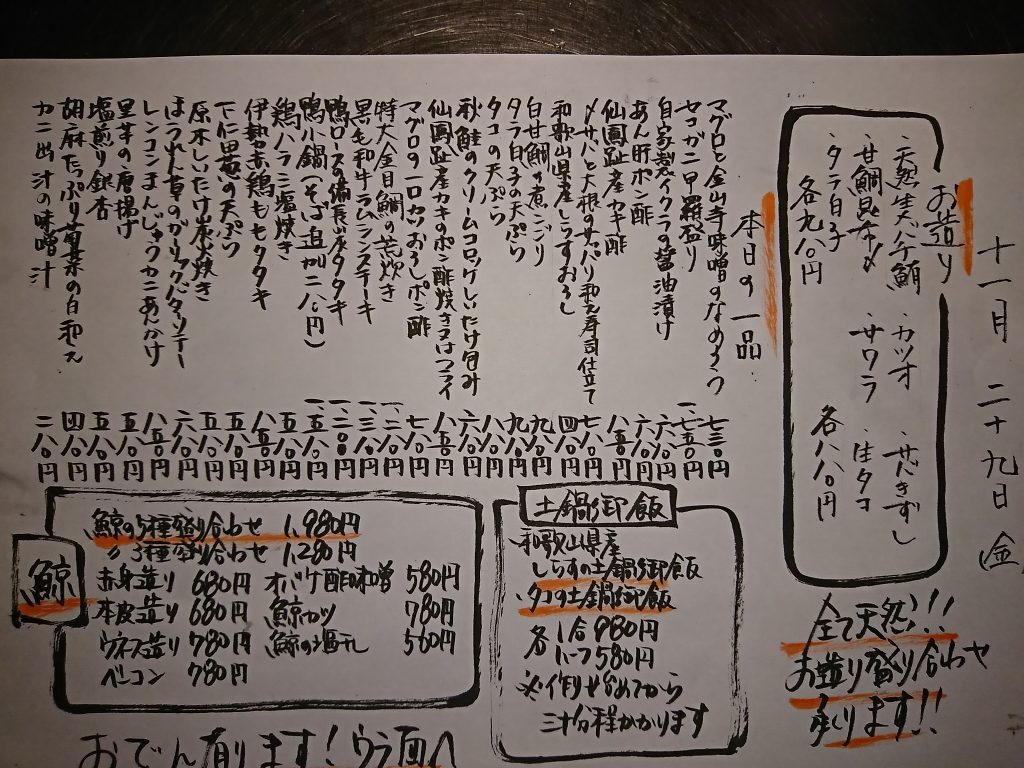 十一月 二十九日 (金)
お造り
・天然生バチ鮪 ・カツオ ・サバきずし
・甘鯛昆布〆 ・サワラ ・生タコ
・タラ白子
各九八〇円 各八八〇円
全て天然!!
お造り盛り合わせ
承ります!!
本日の一品
マグロと金山寺味噌のなめろう 七三〇円
セコガニ甲羅盛り
自家製イクラの醤油漬け 六八〇円
あん肝ポン酢 六八〇円
仙鳳趾産カキ酢 八五〇円
〆サバと大根のサッパリ和え寿司仕立て 七八〇円
和歌山県産しらすおろし 四八〇円
白甘鯛の煮こごり 九八〇円
タラ白子の天ぷら 九八〇円
タコの天ぷら 八八〇円
秋鮭のクリームコロッケしいたけ包み 六八〇円
仙鳳趾産カキのポン酢焼き又はフライ 八五〇円
マグロの一口カツおろしポン酢 七八〇円
特大金目鯛の荒炊き
黒毛和牛ラムシンステーキ
鴨ロースの備長炭タタキ
鴨小鍋(そば追加二八〇円)
鶏ハラミ塩焼き 五八〇円
伊勢赤鶏ももタタキ 八五〇円
下仁田葱の天ぷら 五八〇円
原木しいたけ炭火焼き 五八〇円
ほうれん草のガーリックバターソテー 六八〇円
レンコンまんじゅうカニあんかけ 八五〇円
里芋の唐揚げ 五八〇円
塩煎り銀杏 五八〇円
胡麻たっぷり菊菜の白和え 四八〇円
カニ出汁の味噌汁 二八〇円
土鍋御飯
・和歌山県産
しらすの土鍋御飯
・タコの土鍋御飯
各1合980円
各ハーフ580円
※作り始めてから
二十分程かかります
鯨
鯨の5種盛り合わせ 1,980円
〃3種盛り合わせ 1,280円
赤身造り 680円 オバケ酢味噌 580円
本皮造り 680円 鯨カツ 780円
ウネス造り 780円 鯨の塩干し 560円
ベーコン 780円
おでん有ります!ウラ面へ